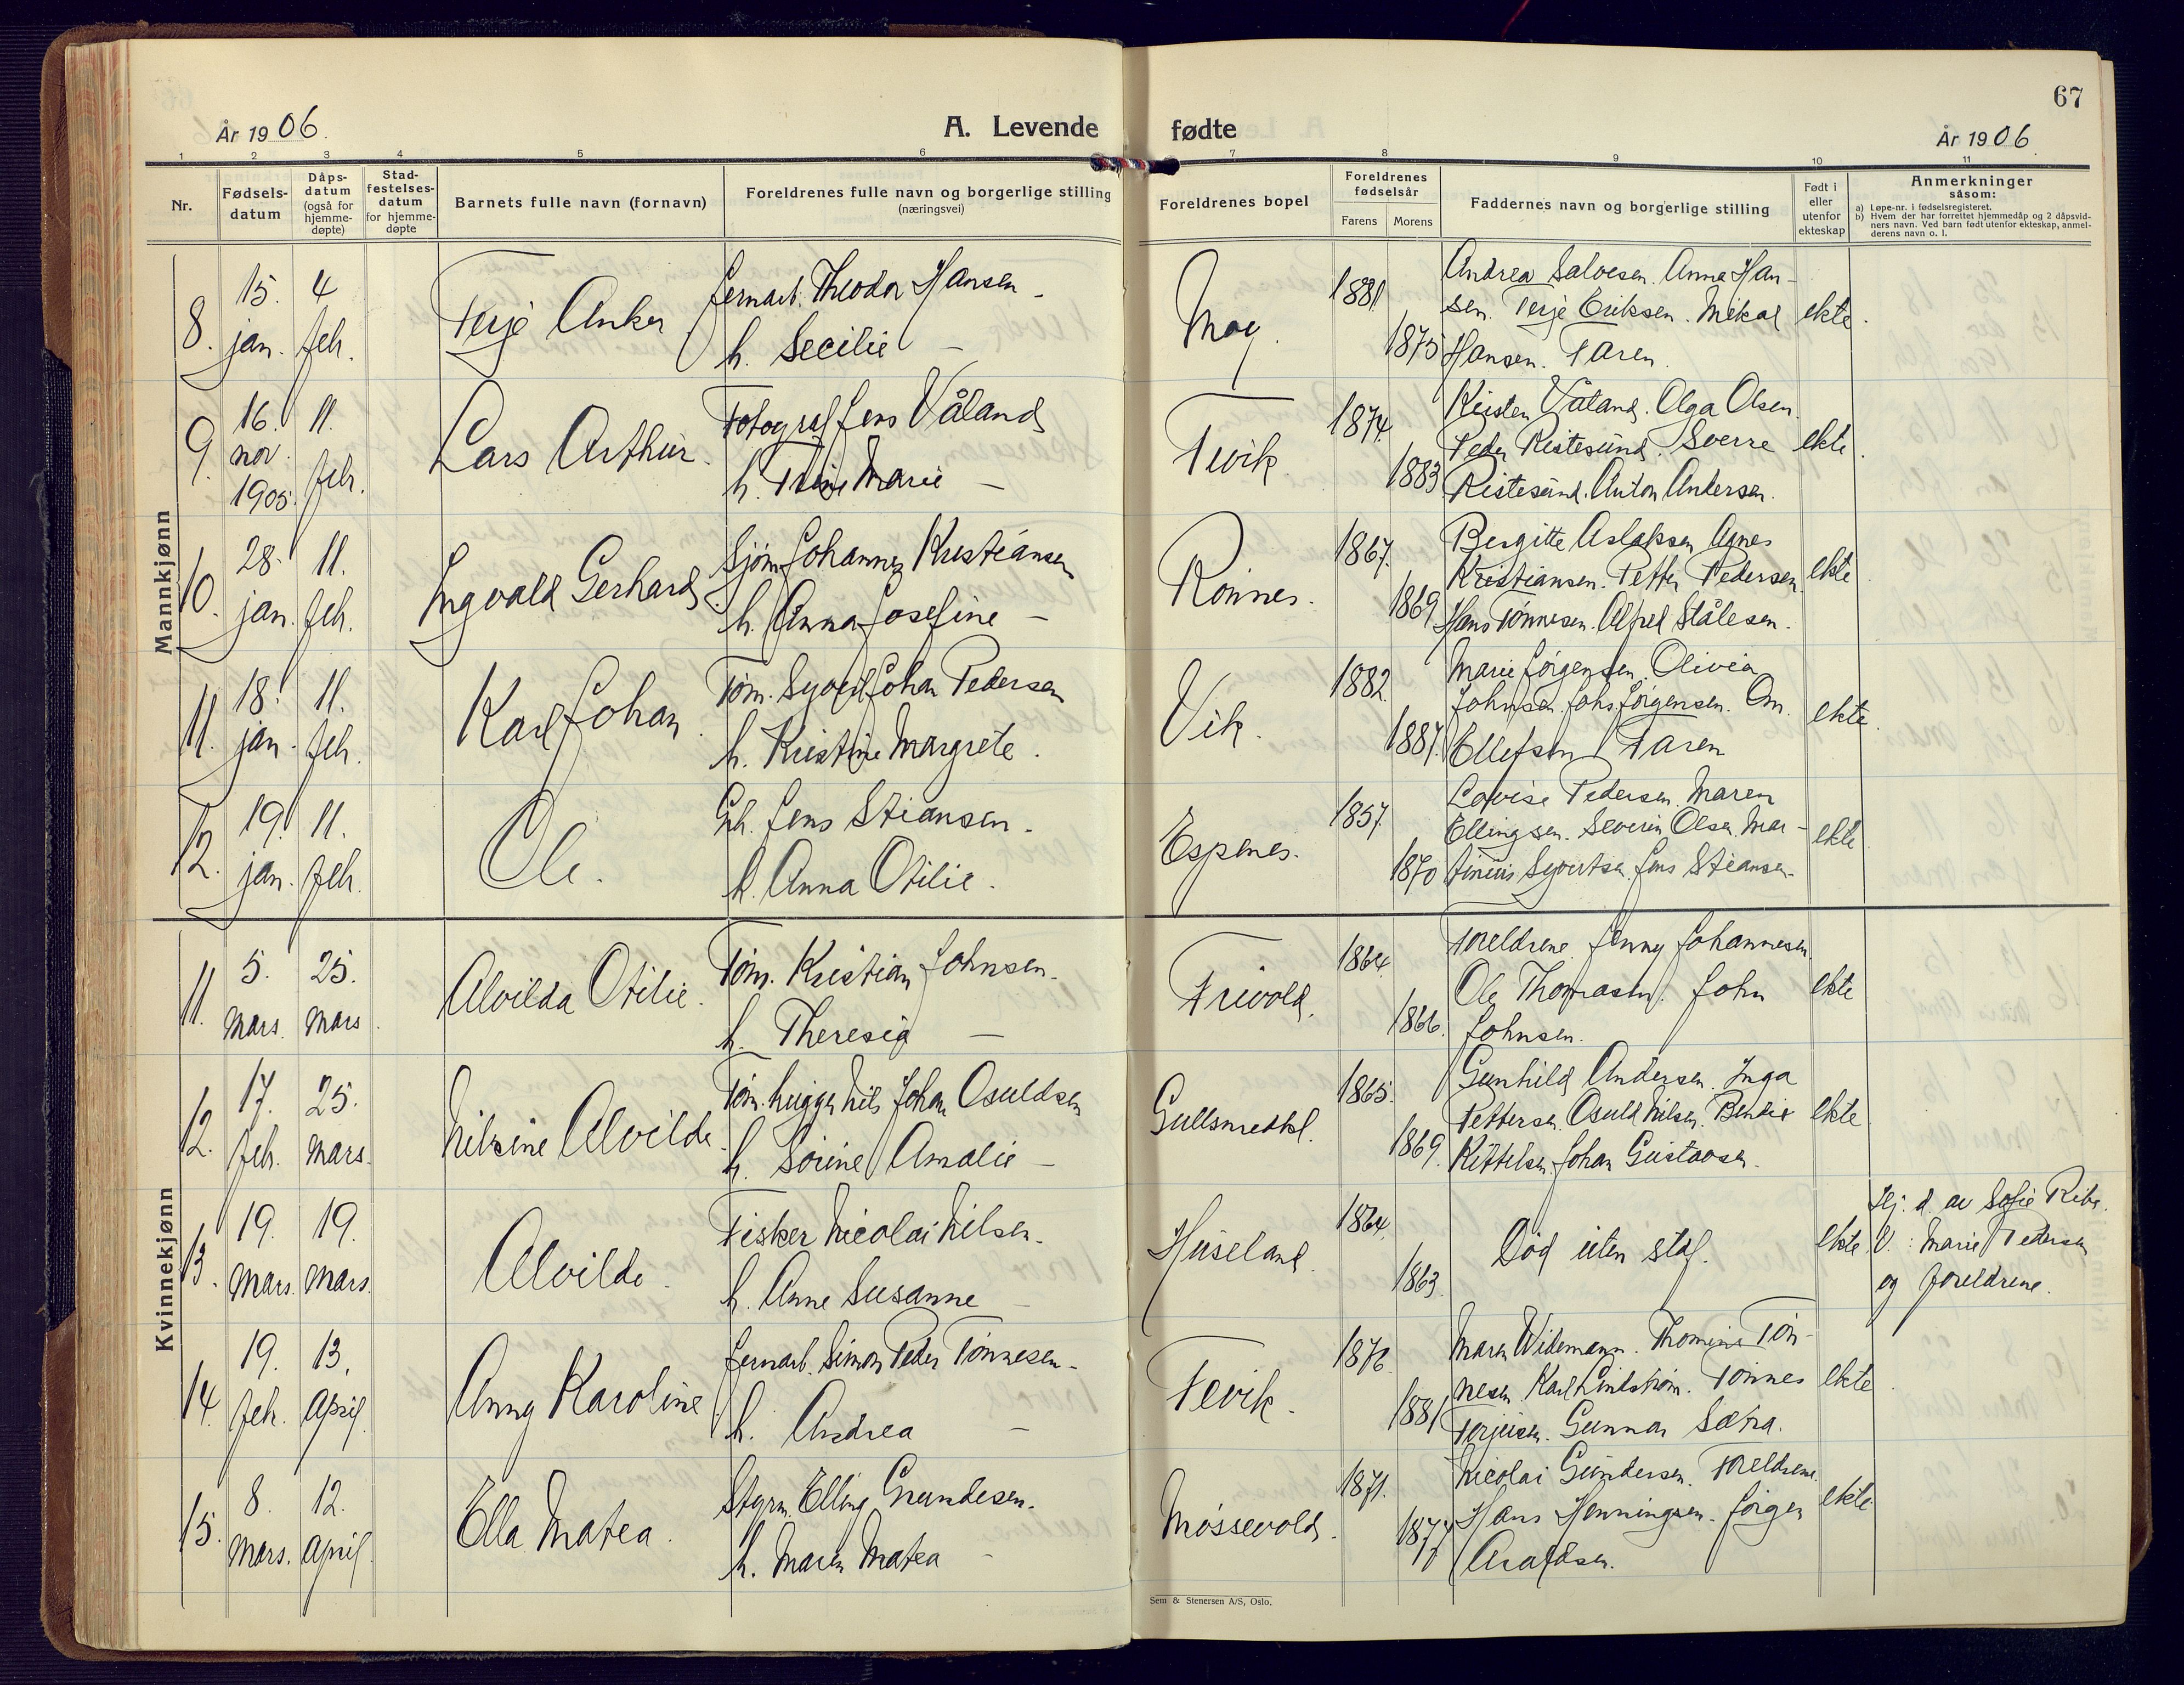 67
År 1906.
A. Levende fødte
År 1906
1 2 3 4 5 6 7 8 9 10 11
Nr.
Fødsels-
datum
Dåps-
datum
(også for
hjemme-
døpte)
Stad-
festelses-
datum
for hjemme-
døpte
Barnets fulle navn (fornavn)
Foreldrenes fulle navn og borgerlige stilling
(næringsvei)
Foreldrenes bopel
Foreldrenes
fødselsår
Farens Morens
Faddernes navn og borgerlige stilling
Født i
eller
utenfor
ekteskap
Anmerkninger
såsom:
a) Løpe-nr. i fødselsregisteret.
b) Hvem der har forrettet hjemmedåp og 2 dåpsvid-
ners navn. Ved barn født utenfor ekteskap, anmel-
derens navn o. l.
Mannkjønn
8. 15. jan. 4 feb. Terje Anker
Jernarb. Theodor Hansen -
h. Secilie -
Moy. 1881. 1875
Andrea Salvesen. Anna Han-
sen. Terje Eriksen. Mikal
Hansen. Faren.
ekte.
9. 16. nov. 1905. 11. feb. Lars Arthur.
Fotograf Jens Våland
h. Trine Marie -
Fevik. 1874. 1883
Kirsten Våland. Olga Olsen.
Peder Ristesund. Sverre
Ristesund. Anton Andersen.
ekte.
10. 28. jan. 11. feb. Ingvald Gerhard.
Sjøm. Johannes Kristiansen
h. Anna Josefine -
Rønnes. 1867. 1869
Bergitte Aslaksen Agnes
Kristiansen. Petter Pedersen
Hans Tønnesen. Alfred Stålesen.
ekte
11. 18. jan. 11. feb. Karl Johan.
Tøm. Syvert Johan Pedersen
h. Kristine Margrete.
Vik. 1882. 1887.
Marie Jørgensen. Olivia
Johnsen. Johs Jørgensen. Om.
Ellefsen Faren
ekte.
12. 19. jan. 11. feb. Ole.
Gb. Jens Stiansen.
h. Anna Otilie.
Espenes. 1857. 1870
Lovise Pedersen. Maren
Ellingsen. Severin Olsen Mar-
tinius Syvertsen. Jens Stiansen.
ekte
Kvinnekjønn
11. 5. mars. 25. mars. Alvilda Otilie.
Tøm. Kristian Johnsen.
h. Theresia -
Frivold. 1864. 1866.
Foreldrene. Jenny Johannesen.
Ole Thomasen. John
Johnsen.
ekte
12. 17. feb. 25. mars. Nilsine Alvilde.
Tøm.hugger Nils Johan Osuldsen
h. Sørine Amalie -
Gullsmedkl. 1865. 1869.
Gunhild Andersen. Inga
Pettersen. Osuld Nilsen. Bendix
Kittelsen. Johan Gustavsen.
ekte
13. 19. mars. 19. mars. Alvilde.
Fisker Nicolai Nilsen.
h. Anne Susanne -
Huseland. 1864. 1863.
Død uten staf.
ekte
Hj. d. av Sofie Ribe.
V.: Marie Petersen
og foreldrene.
14. 19. feb. 13. April. Anny Karoline
Jernarb. Simon Peder Tønnesen -
h. Andrea -
Fevik. 1876 1881
Maren Widemann. Thomine Tøn-
nesen Karl Lindstrøm. Tønnes
Terjesen. Gunnar Sætra.
ekte.
15. 8. mars. 12. April. Ella Matea.
Styrm. Elling Gundesen.
h. Maren Matea -
Møssevold. 1871. 1877
Nicolai Gundersen. Foreldrene.
Hans Henningsen. Jørgen
ekte.
Sem & Stenersen A/S, Oslo.